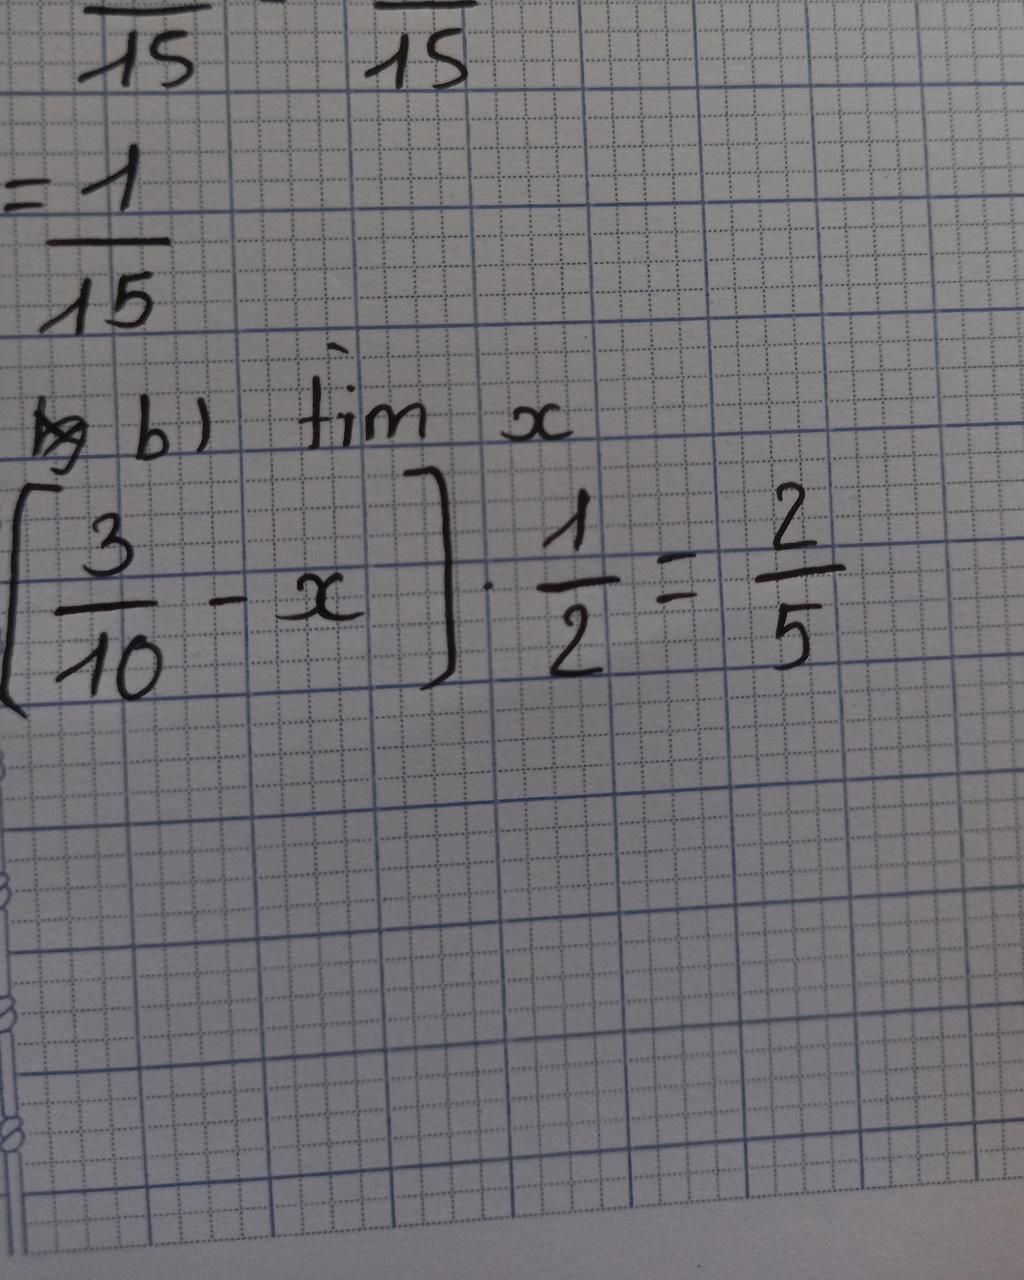 15 15
= 1/15
b) tìm x
[3/10 - x] . 1/2 = 2/5